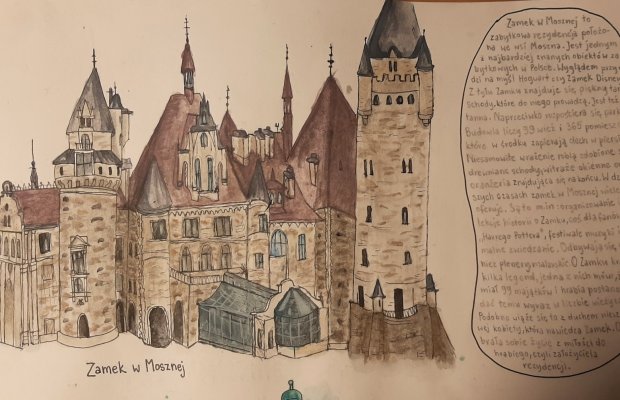 Zamek w Mosznej to
zabytkowa rezydencja położo-
na we wsi Moszna. Jest jednym
z najbardziej znanych obiektów za
bytkowych w Polsce. Wyglądem przy
dzi na myśl Hogwart czy Zamek Disney
Z tyłu Zamku znajduje się piękny tar
schody, które do niego prowadzą. Jest też
tanna. Naprzeciwko rozpościera się park
Budowla liczy 99 wież i 365 pomiesz
które w środku zapierają dech w piersi
Niesamowite wrażenie robią ozdobione
drewniane schody, witraże okienne or
oranżeria znajdująca się na końcu. W dz
szych czasach zamek w Mosznej wiele
oferuje. Są to m.in: organizowanie
lekcje historii o Zamku, coś dla fanów
"Harrego Pottera", festiwale muzyki
malne zwiedzanie. Odbywają się
nież plenery malarskie. O Zamku kr
kilka legend, jedna z nich mówi,
miał 99 majątków i hrabia postano
dać temu wyraz w liczbie wieżyc
Podobno wiąże się to z duchem niesz
wej kobiety, która nawiedza Zamek. O
brała sobie życie z miłości do
hrabiego, czyli założyciela
rezydencji.
Zamek w Mosznej